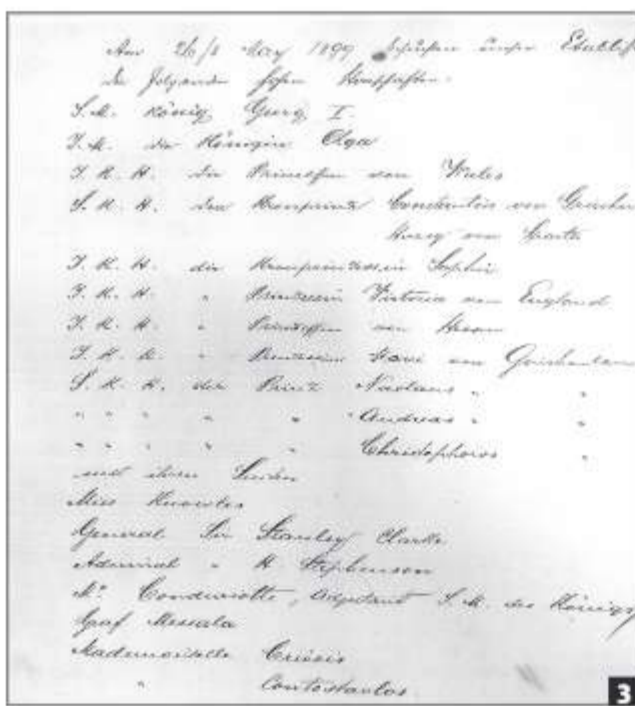 Am 26/8 May 1899 besuchten unser Etabliss
die folgenden hohen Herrschaften:
S. M. König Georg I.
I. M. die Königin Olga
I. K. H. die Prinzessin von Wales
S. K. H. der Kronprinz Constantin von Griechen
Herzog von Sparta
I. K. H. die Kronprinzessin Sophie
I. K. H. " Prinzessin Victoria von England
I. K. H. " Prinzessin von
I. K. H. " Prinzessin Marie von Griechenland
S. K. H. der Prinz Nicolaus " "
" " " " " Andreas " "
" " " " " Christophoros "
und ihren
Miss Knowles
General Sir Stanley Clarke
Admiral " H. Stephenson
Mr. Conduriotte, Adjutant S. M. des Königs
Graf Messala
Mademoiselle
" Contostavlos
3